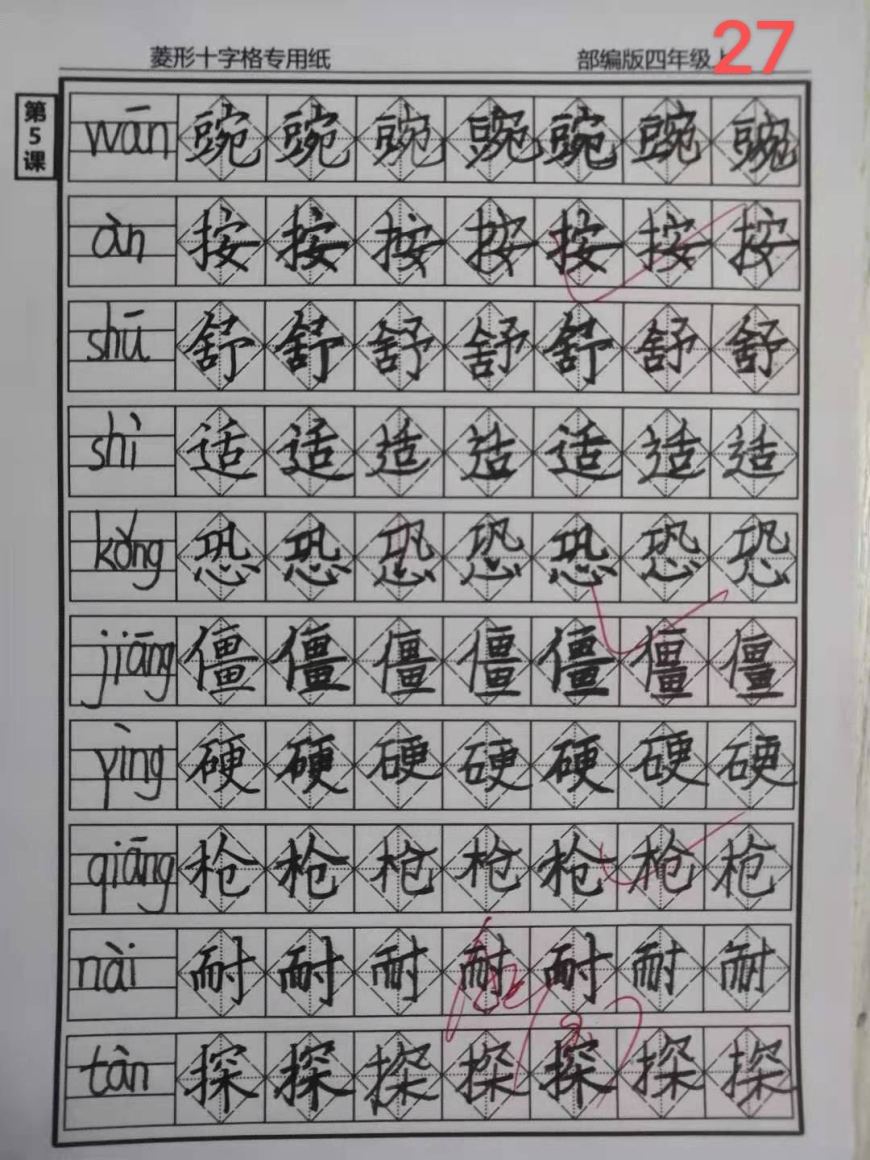 27
菱形十字格专用纸 部编版四年级上
第5课
wān 豌 豌 豌 豌 豌 豌 豌
àn 按 按 按 按 按 按 按
shū 舒 舒 舒 舒 舒 舒 舒
shì 适 适 适 适 适 适 适
kǒng 恐 恐 恐 恐 恐 恐 恐
jiāng 僵 僵 僵 僵 僵 僵 僵
yìng 硬 硬 硬 硬 硬 硬 硬
qiāng 枪 枪 枪 枪 枪 枪 枪
nài 耐 耐 耐 耐 耐 耐 耐
tàn 探 探 探 探 探 探 探